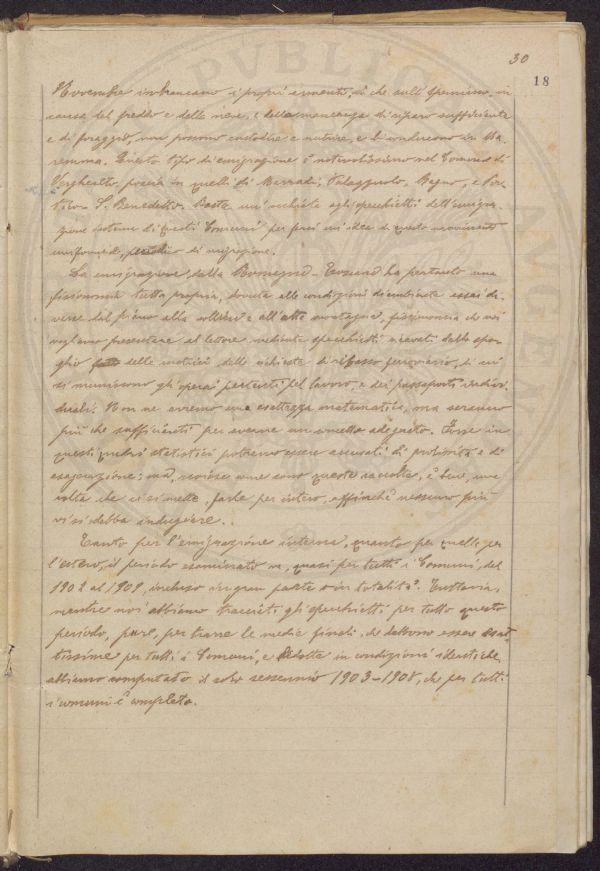 30
18
Novembre imbrancano i propri armenti, sì che sull' Apennino, in
causa del freddo e delle neve, e della mancanza di riparo sufficiente
e di foraggio, non possono custodire e nutrire, e li conducono in Ma-
remma. Questo tipo di emigrazione è notevolissimo nel Comune di
Verghereto, poscia in quelli di Marradi, Palazzuolo, Bagno, e Por-
tico - S. Benedetto. Basta un' occhiata agli specchietti dell' emigra-
zione interna di questi Comuni per farsi un' idea di questo movimento
uniforme di migrazione.
La emigrazione della Romagna - Toscana ha pertanto una
fisionomia tutta propria, dovuta alle condizioni d'ambiente assai di-
verse dal piano alla collina e all' alta montagna, fisionomia che noi
vogliamo presentare al lettore mediante specchietti ricavati dallo spo-
glio delle matrici delle richieste di ribasso ferroviario, di cui
si muniscono gli operai partenti pel lavoro, e dei passaporti indivi-
duali. Non ne avremo una esattezza matematica, ma saranno
più che sufficienti per averne un concetto adeguato. Forse in
questi quadri statistici potremo essere accusati di prolissità e di
esagerazione; ma, noiose come sono queste raccolte, è bene, una
volta che ci si mette, farle per intero, affinchè nessuno più
vi si debba indugiare.
Tanto per l'emigrazione interna, quanto per quella per
l'estero, il periodo esaminato va, quasi per tutti i Comuni, dal
1902 al 1909, incluso in gran parte o in totalità. Tuttavia,
mentre noi abbiamo tracciati gli specchietti per tutto questo
periodo, pure, per trarre le medie finali, che debbono essere esat-
tissime per tutti i Comuni, e ridotte in condizioni identiche,
abbiamo computato il solo sessennio 1903-1908, che per tutti
i comuni è completo.